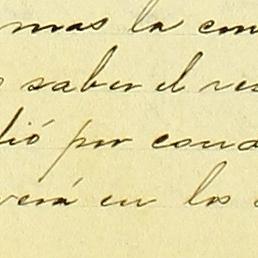 mas la con
saber el res
dió por cond
verá en los